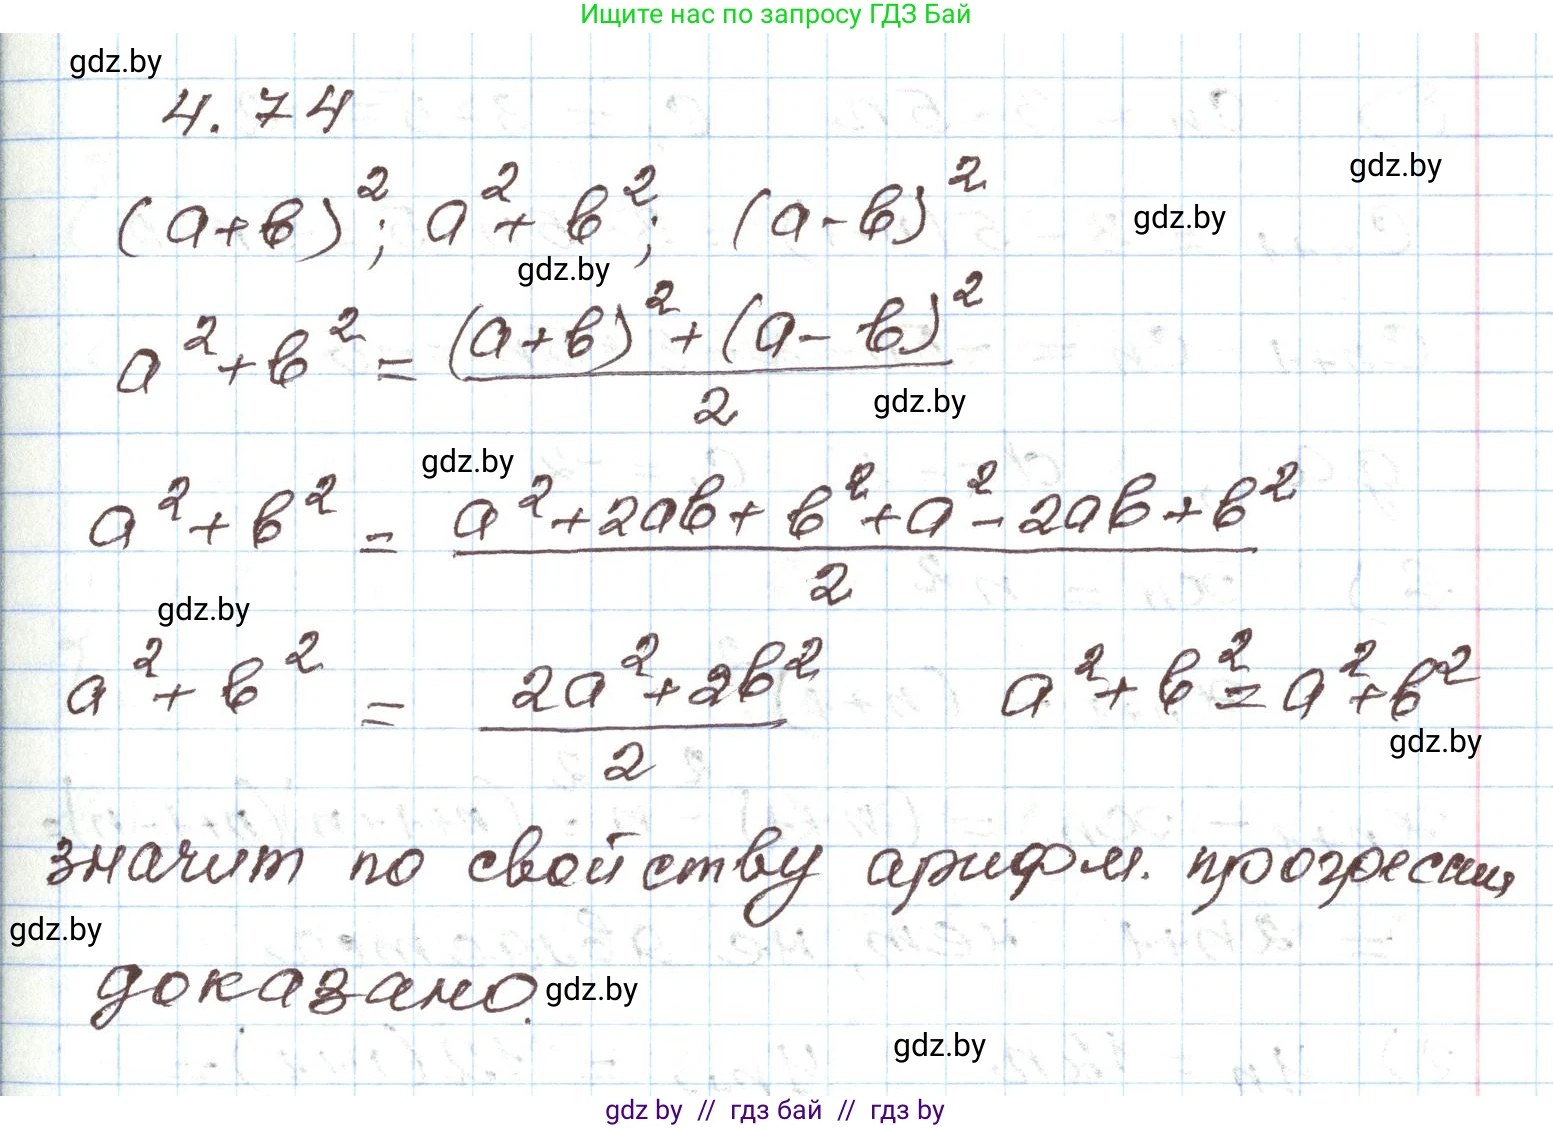 Ищите нас по запросу ГДЗ Бай
gdz.by
4.74
gdz.by
(a+b)²; a²+b²; (a-b)²
gdz.by
gdz.by
a²+b² = ((a+b)²+(a-b)²)/2
gdz.by
gdz.by
a²+b² = (a²+2ab+b²+a²-2ab+b²)/2
gdz.by
a²+b² = (2a²+2b²)/2 a²+b²=a²+b²
gdz.by
значит по свойству арифм. прогрессии,
gdz.by
доказано.
gdz.by
gdz.by
gdz by // гдз бай // гдз by